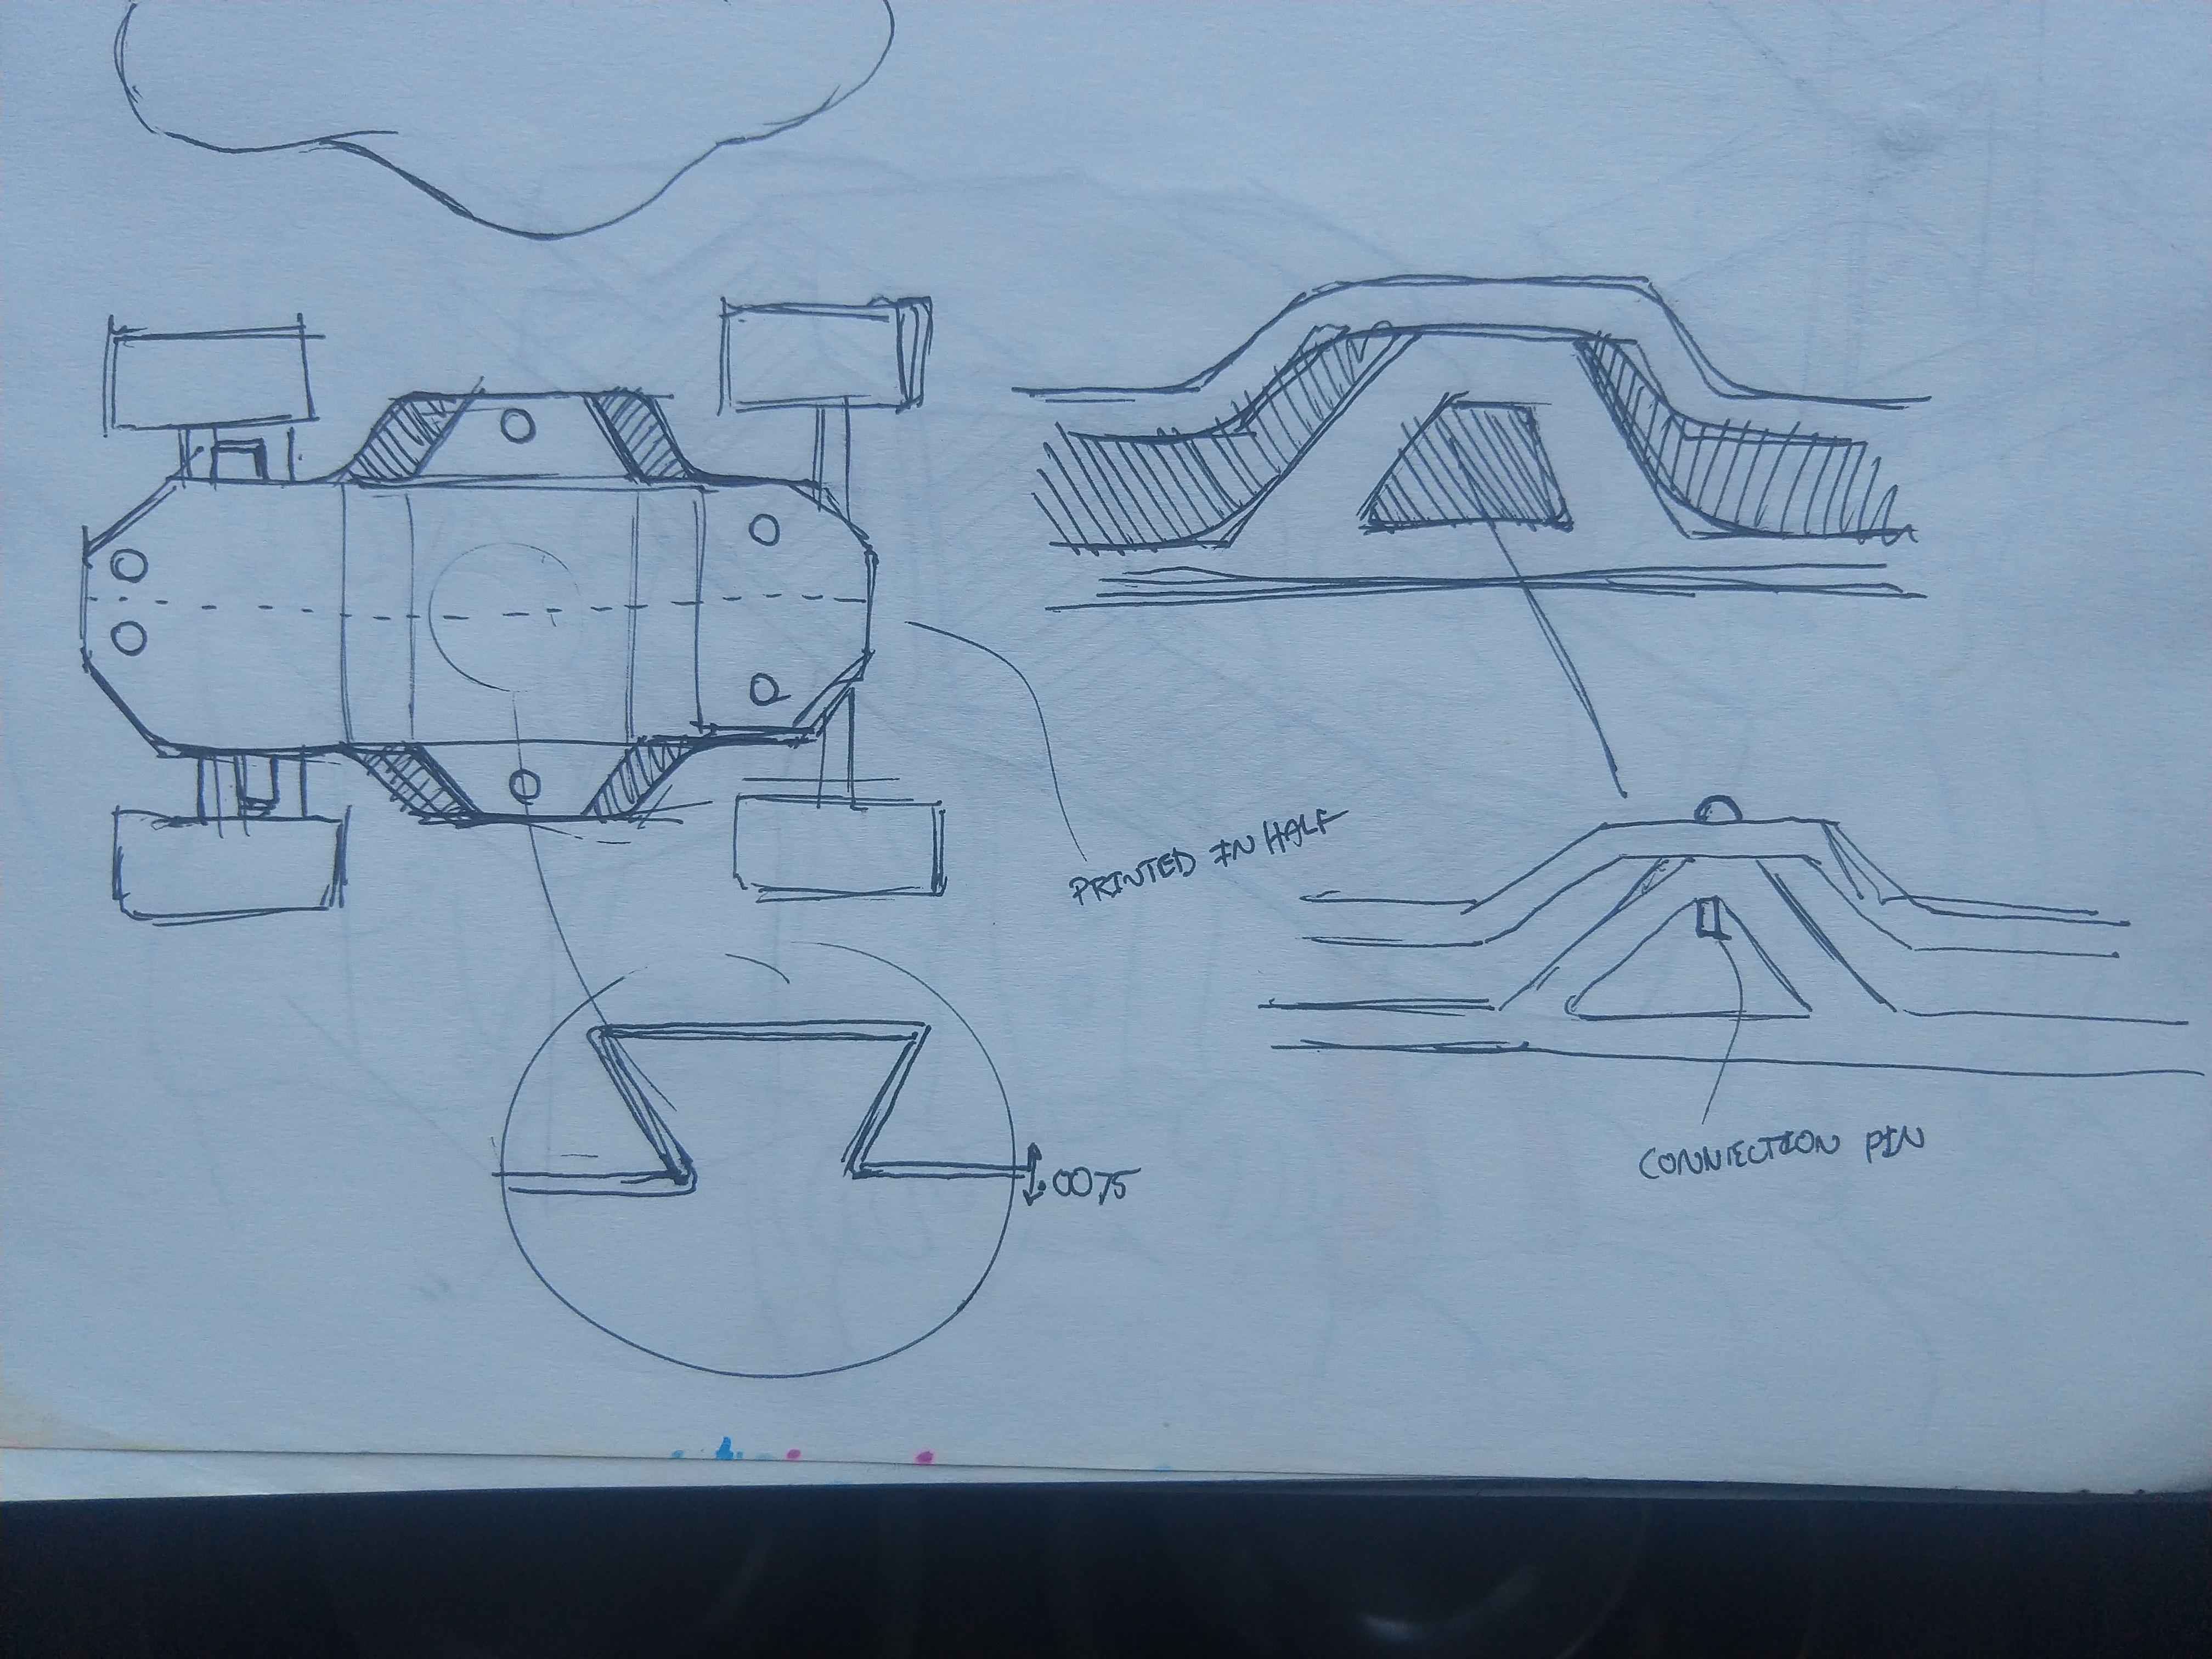 PRINTED IN HALF
.0075
CONNECTION PIN